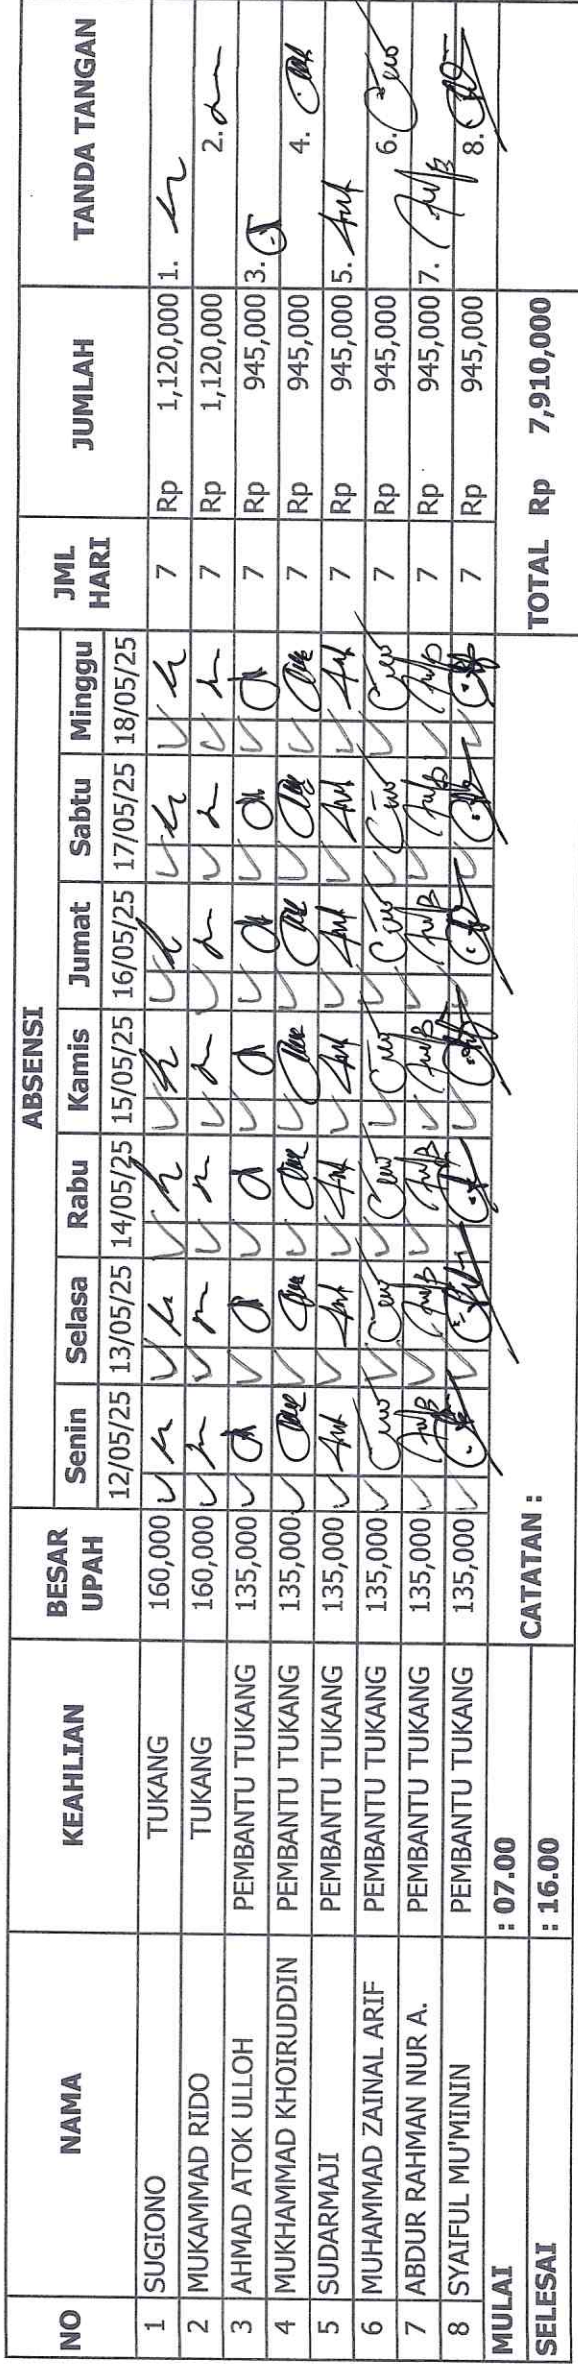 NO NAMA KEAHLIAN BESAR UPAH ABSENSI JML HARI JUMLAH TANDA TANGAN
Senin Selasa Rabu Kamis Jumat Sabtu Minggu
12/05/25 13/05/25 14/05/25 15/05/25 16/05/25 17/05/25 18/05/25
1 SUGIONO TUKANG 160,000 7 Rp 1,120,000 1.
2 MUKAMMAD RIDO TUKANG 160,000 7 Rp 1,120,000 2.
3 AHMAD ATOK ULLOH PEMBANTU TUKANG 135,000 7 Rp 945,000 3.
4 MUKHAMMAD KHOIRUDDIN PEMBANTU TUKANG 135,000 7 Rp 945,000 4.
5 SUDARMAJI PEMBANTU TUKANG 135,000 7 Rp 945,000 5.
6 MUHAMMAD ZAINAL ARIF PEMBANTU TUKANG 135,000 7 Rp 945,000 6.
7 ABDUR RAHMAN NUR A. PEMBANTU TUKANG 135,000 7 Rp 945,000 7.
8 SYAIFUL MU'MININ PEMBANTU TUKANG 135,000 7 Rp 945,000 8.
MULAI : 07.00
SELESAI : 16.00
CATATAN :
TOTAL Rp 7,910,000